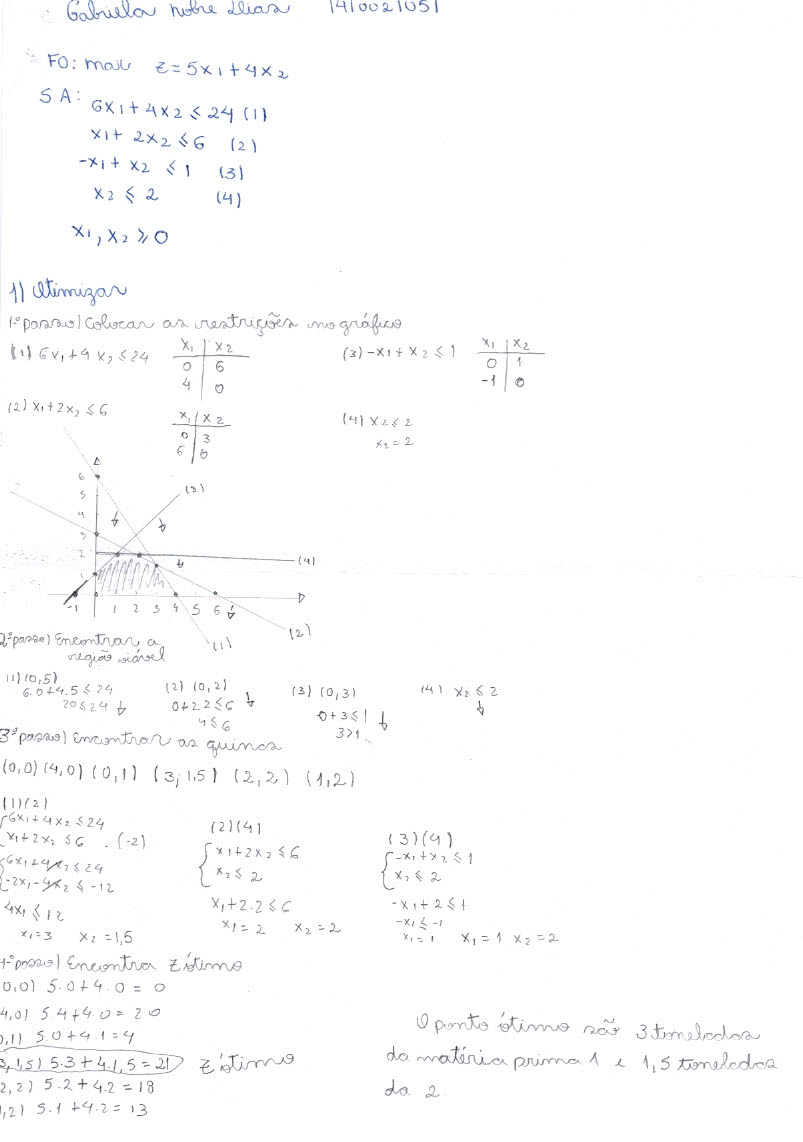 Gabriela Nobre Dias 14/0021051
FO: max z = 5x1 + 4x2
S.A:
6x1 + 4x2 ≤ 24 (1)
x1 + 2x2 ≤ 6 (2)
-x1 + x2 ≤ 1 (3)
x2 ≤ 2 (4)
x1, x2 ≥ 0
1) Otimizar
1º passo) Colocar as restrições no gráfico
(1) 6x1 + 4x2 ≤ 24
x1 | x2
0 | 6
4 | 0
(3) -x1 + x2 ≤ 1
x1 | x2
0 | 1
-1 | 0
(2) x1 + 2x2 ≤ 6
x1 | x2
0 | 3
6 | 0
(4) x2 ≤ 2
x2 = 2
6
5
4
3
2
1
-1 0 1 2 3 4 5 6
(3)
(4)
(2)
(1)
2º passo) Encontrar a
região viável
(1) (0,5)
6.0 + 4.5 ≤ 24
20 ≤ 24
(2) (0,2)
0 + 2.2 ≤ 6
4 ≤ 6
(3) (0,3)
0 + 3 ≤ 1
3 > 1
(4) x2 ≤ 2
3º passo) Encontrar as quinas
(0,0) (4,0) (0,1) (3; 1,5) (2,2) (1,2)
(1)(2)
6x1 + 4x2 ≤ 24
x1 + 2x2 ≤ 6 . (-2)
6x1 + 4x2 ≤ 24
-2x1 - 4x2 ≤ -12
4x1 ≤ 12
x1 = 3 x2 = 1,5
(2)(4)
x1 + 2x2 ≤ 6
x2 ≤ 2
x1 + 2.2 ≤ 6
x1 = 2 x2 = 2
(3)(4)
-x1 + x2 ≤ 1
x2 ≤ 2
-x1 + 2 ≤ 1
-x1 ≤ -1
x1 = 1 x1 = 1 x2 = 2
4º passo) Encontra Z ótimo
0,0) 5.0 + 4.0 = 0
4,0) 5.4 + 4.0 = 20
0,1) 5.0 + 4.1 = 4
3, 1,5) 5.3 + 4.1,5 = 21 Z ótimo
2,2) 5.2 + 4.2 = 18
1,2) 5.1 + 4.2 = 13
O ponto ótimo são 3 toneladas
da matéria prima 1 e 1,5 toneladas
da 2.